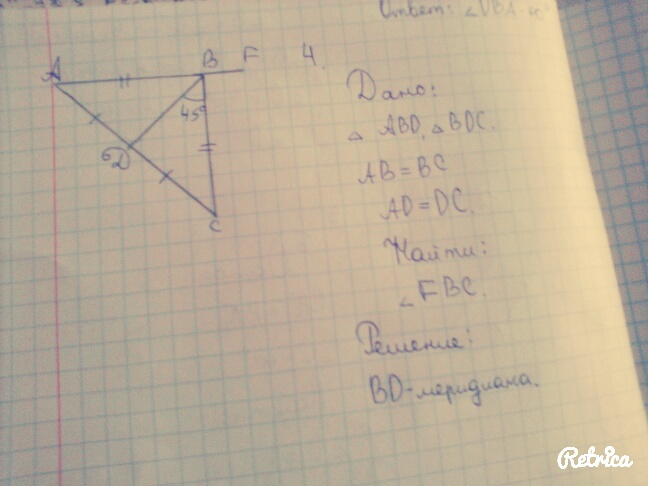 Ответ: ∠DBA
A
B
F
4.
45°
D
C
Дано:
△ ABD, △ BDC.
AB = BC
AD = DC.
Найти:
∠FBC.
Решение:
BD-меридиана.
Retrica